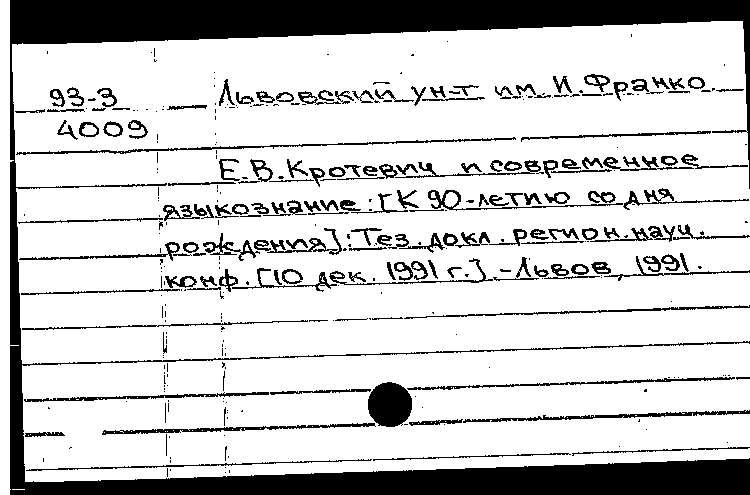 93-3 Львовский ун-т им. И. Франко
4009
Е.В. Кротевич и современное
языкознание: [К 90-летию со дня
рождения]: Тез. докл. регион. науч.
конф. [10 дек. 1991 г.]. - Львов, 1991.